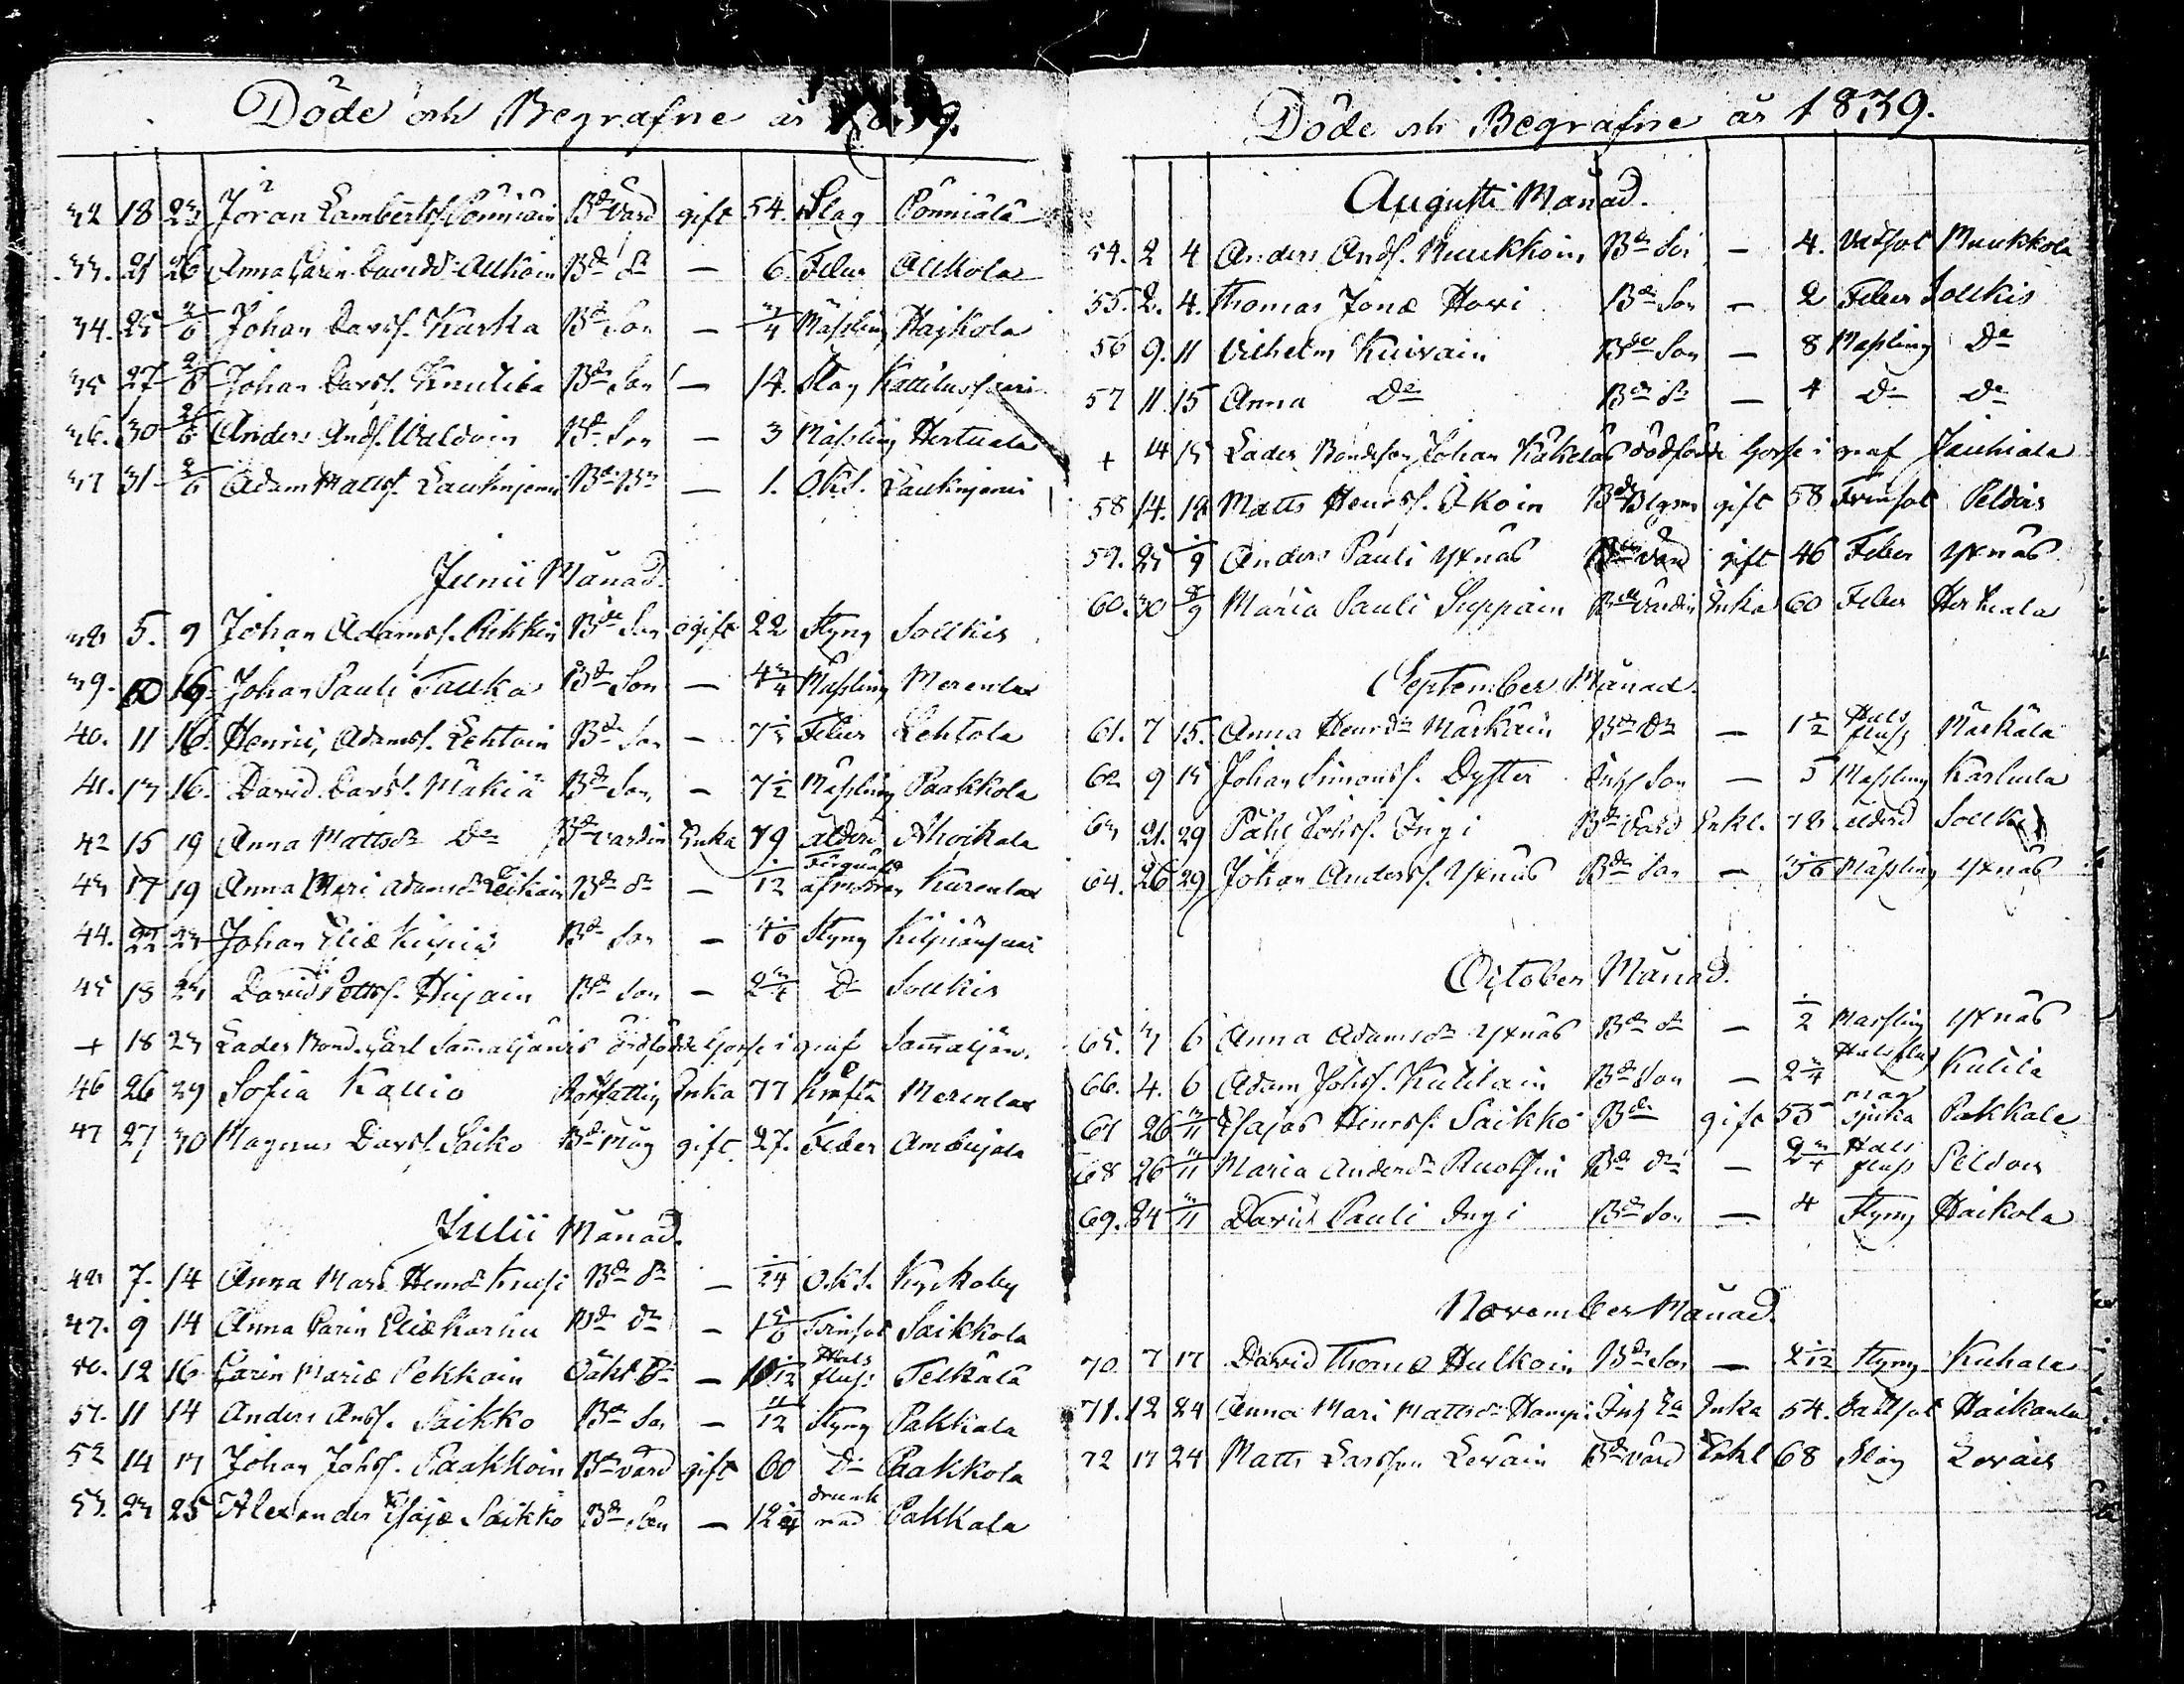 Döde och Begrafne år 1839.
32 18 23 Jöran Lambertss. Pönniäin Bde Värd gift 54. Slag Pönniälä
33. 21 26 Anna Carin Davidsdr Alkoin Bde dr — 6. Feber Alkola
34. 25 2/6 Johan Davss. Karka Bde Son — 3/4 Mäßling Haikola
35 27 2/6 Johan Davss. Knuliba Bde Son — 14. Slag
36. 30 2/6 Anders Ands. Waldoin Bde Son — 3 Mäßling Hertuala
37 31 2/6 Adam Mattss. — 1. Oks.
Junii Månad.
38 5. 9 Johan Adamss. Rikkin Bde Son ogift 22 Styng Sollkis
39. 10 16. Johan Pauli Tauka Bde Son — 4 3/4 Mäßling Merenlax
40. 11 16. Henric Adamss. Lehtoin Bde Son — Feber Lehtola
41. 13 16. David Davss. Mäkiä Bde Son — 7 1/2 Mäßling Paakkola
42 15 19 Anna Mattsdr Do Bde värdin Enka 79 ålderd Ahvikala
43 17 19 Anna Mari Adamsdr Bde dr — 1/12 Kurenlax
44. 22 23 Johan Eliæ Kilpiä Bde Son — Styng Kilpiänsaari
45 18 23 David Hujain Bde Son — 2 3/4 Do Sollkis
+ 18 23 Lades Bond. Carl dödfödde Gosse i graf
46 26 29 Sofia Kallio Rotfattig Enka 77 Kräfta Merenlax
47 27 30 Magnus Davss. Saiko Bde Måg gift 27. Feber
Julii Månad.
48 7. 14 Anna Mari Henrdr Bde dr — 1/24 O.K.S. Kyrkoby
49. 9 14 Anna Carin Eliæ Karhu Bde dr — 1 5/6 Tvinsot Saikkola
50. 12 16 Carin Mariæ Pekkain Oäkt Dr — Hals fluss Telkälä
51. 11 14 Anders Anss. Saikko Bde Son — 11/12 Styng Pakkala
52 14 17 Johan Johss. Paakkoin Bde värd gift 60 Do Paakkola
53. 23 25 Alexander Esajæ Saikko Bde Son — 12 drunk nad Pakkala
Döde och Begrafne år 1839.
Augusti Månad.
54. 2 4 Anders Ands. Muukkoin Bde Son — 4. Vatsot Muukkola
55. 2. 4. Thomas Jonæ Hovi Bde Son — 2 Feber Sollkis
56 9. 11 Vilhelm Kuivain Bde Son — 8 Mäßling Do
57 11. 15 Anna Do Bde dr — 4 Do Do
+ 14 15 Lades Bondeson Johan Käkeläs dödfödde Gosse i graf
58 14. 18 Matts Henrss. Ikoin gift 58 Tvinsot Peldois
59. 25 1/9 Anders Pauli Yxnäs Bde värd gift 46 Feber Yxnäs
60. 30 8/9 Maria Pauli Suppain Bde värdin Enka 60 Feber Hertuala
September Månad.
61. 7 15. Anna Henrsdr Märkäin Bde Dr — 1 1/2 Hals fluss Märkälä
62 9 15 Johan Simonss. Dyster Inhs Son — 5 Mäßling Karhula
63 21. 29 Påhl Johss. Ingi Bde Värd Enkl. 78 ålderd Sollkis
64. 26 29 Johan Anderss. Yxnäs Bde Son — Mäßling Yxnäs
October Månad.
65. 3 6 Anna Adamsdr Yxnäs Bde dr — 1/2 Mässling Yxnäs
66. 4. 6 Adam Johss. Kulilain Bde Son — 2 3/4 Halsfluss Kulila
67 26 3/11 Esajas Henrss. Saikko Bde gift 55 mag sjuka Pakkala
68 26 3/11 Maria Andersdr Ruotsin Bde dr — 2 3/4 Hals fluss Peldois
69. 24 3/11 David Pauli Ingi Bde Son — 4 Styng Haikola
November Månad.
70 7 17 David Thomæ Hulkoin Bde Son — Styng Kuhala
71. 12 24 Anna Mari Mattsdr Enka 54. Haikanlax
72 17 24 Matts Larsson Leväin Bde värd Enkl 68 Slag Leväis